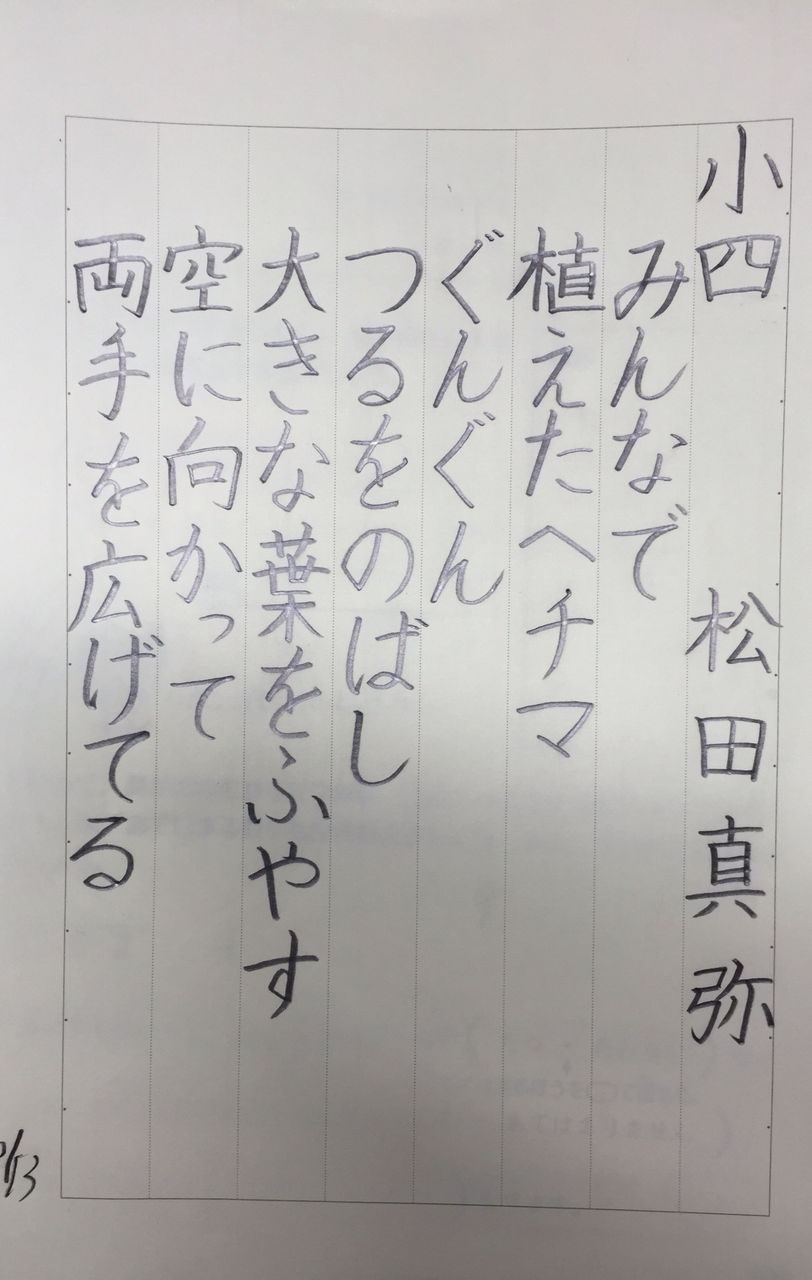 小四 松田真弥
みんなで
植えたヘチマ
ぐんぐん
つるをのばし
大きな葉をふやす
空に向かって
両手を広げてる